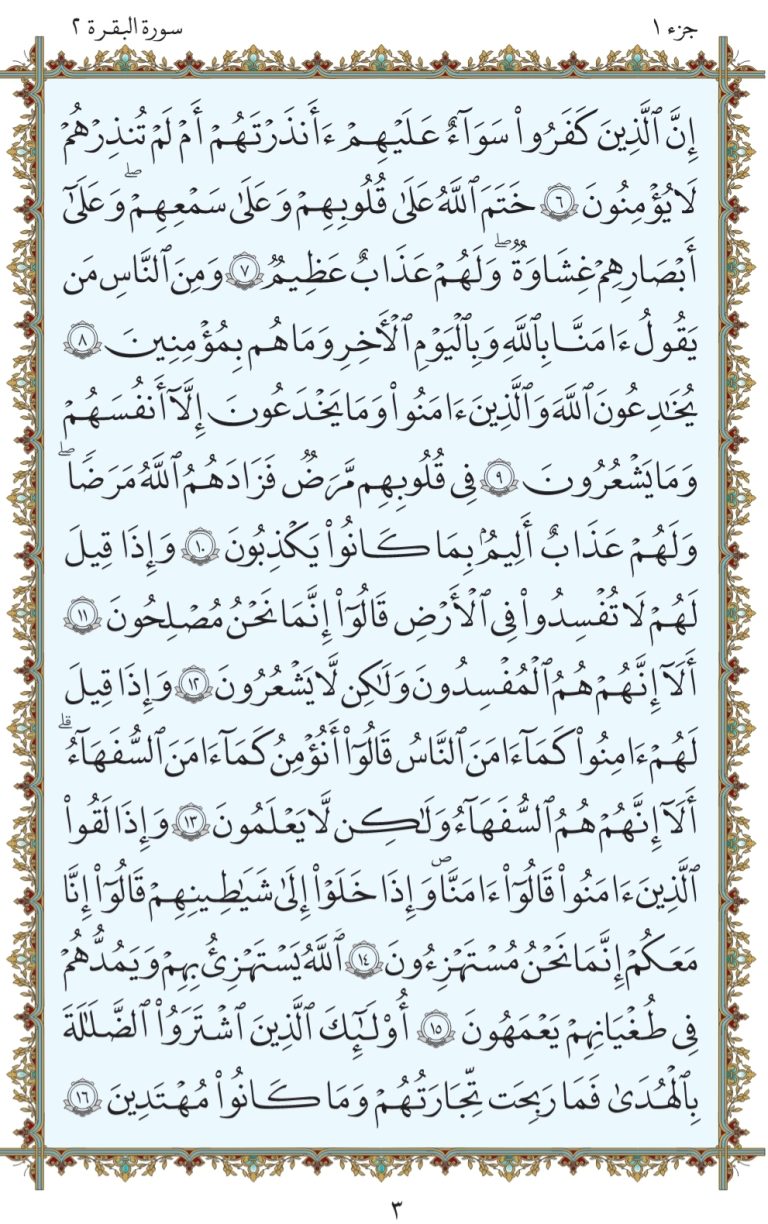 جزء ١
سورة البقرة ٢
إِنَّ ٱلَّذِينَ كَفَرُوا۟ سَوَآءٌ عَلَيْهِمْ ءَأَنذَرْتَهُمْ أَمْ لَمْ تُنذِرْهُمْ
لَا يُؤْمِنُونَ ٦ خَتَمَ ٱللَّهُ عَلَىٰ قُلُوبِهِمْ وَعَلَىٰ سَمْعِهِمْ ۖ وَعَلَىٰٓ
أَبْصَٰرِهِمْ غِشَٰوَةٌ ۖ وَلَهُمْ عَذَابٌ عَظِيمٌ ٧ وَمِنَ ٱلنَّاسِ مَن
يَقُولُ ءَامَنَّا بِٱللَّهِ وَبِٱلْيَوْمِ ٱلْأَخِرِ وَمَا هُم بِمُؤْمِنِينَ ٨
يُخَٰدِعُونَ ٱللَّهَ وَٱلَّذِينَ ءَامَنُوا۟ وَمَا يَخْدَعُونَ إِلَّآ أَنفُسَهُمْ
وَمَا يَشْعُرُونَ ٩ فِى قُلُوبِهِم مَّرَضٌ فَزَادَهُمُ ٱللَّهُ مَرَضًا ۖ
وَلَهُمْ عَذَابٌ أَلِيمٌۢ بِمَا كَانُوا۟ يَكْذِبُونَ ١٠ وَإِذَا قِيلَ
لَهُمْ لَا تُفْسِدُوا۟ فِى ٱلْأَرْضِ قَالُوٓا۟ إِنَّمَا نَحْنُ مُصْلِحُونَ ١١
أَلَآ إِنَّهُمْ هُمُ ٱلْمُفْسِدُونَ وَلَٰكِن لَّا يَشْعُرُونَ ١٢ وَإِذَا قِيلَ
لَهُمْ ءَامِنُوا۟ كَمَآ ءَامَنَ ٱلنَّاسُ قَالُوٓا۟ أَنُؤْمِنُ كَمَآ ءَامَنَ ٱلسُّفَهَآءُ ۗ
أَلَآ إِنَّهُمْ هُمُ ٱلسُّفَهَآءُ وَلَٰكِن لَّا يَعْلَمُونَ ١٣ وَإِذَا لَقُوا۟
ٱلَّذِينَ ءَامَنُوا۟ قَالُوٓا۟ ءَامَنَّا وَإِذَا خَلَوْا۟ إِلَىٰ شَيَٰطِينِهِمْ قَالُوٓا۟ إِنَّا
مَعَكُمْ إِنَّمَا نَحْنُ مُسْتَهْزِءُونَ ١٤ ٱللَّهُ يَسْتَهْزِئُ بِهِمْ وَيَمُدُّهُمْ
فِى طُغْيَٰنِهِمْ يَعْمَهُونَ ١٥ أُو۟لَٰٓئِكَ ٱلَّذِينَ ٱشْتَرَوُا۟ ٱلضَّلَٰلَةَ
بِٱلْهُدَىٰ فَمَا رَبِحَت تِّجَٰرَتُهُمْ وَمَا كَانُوا۟ مُهْتَدِينَ ١٦
٣